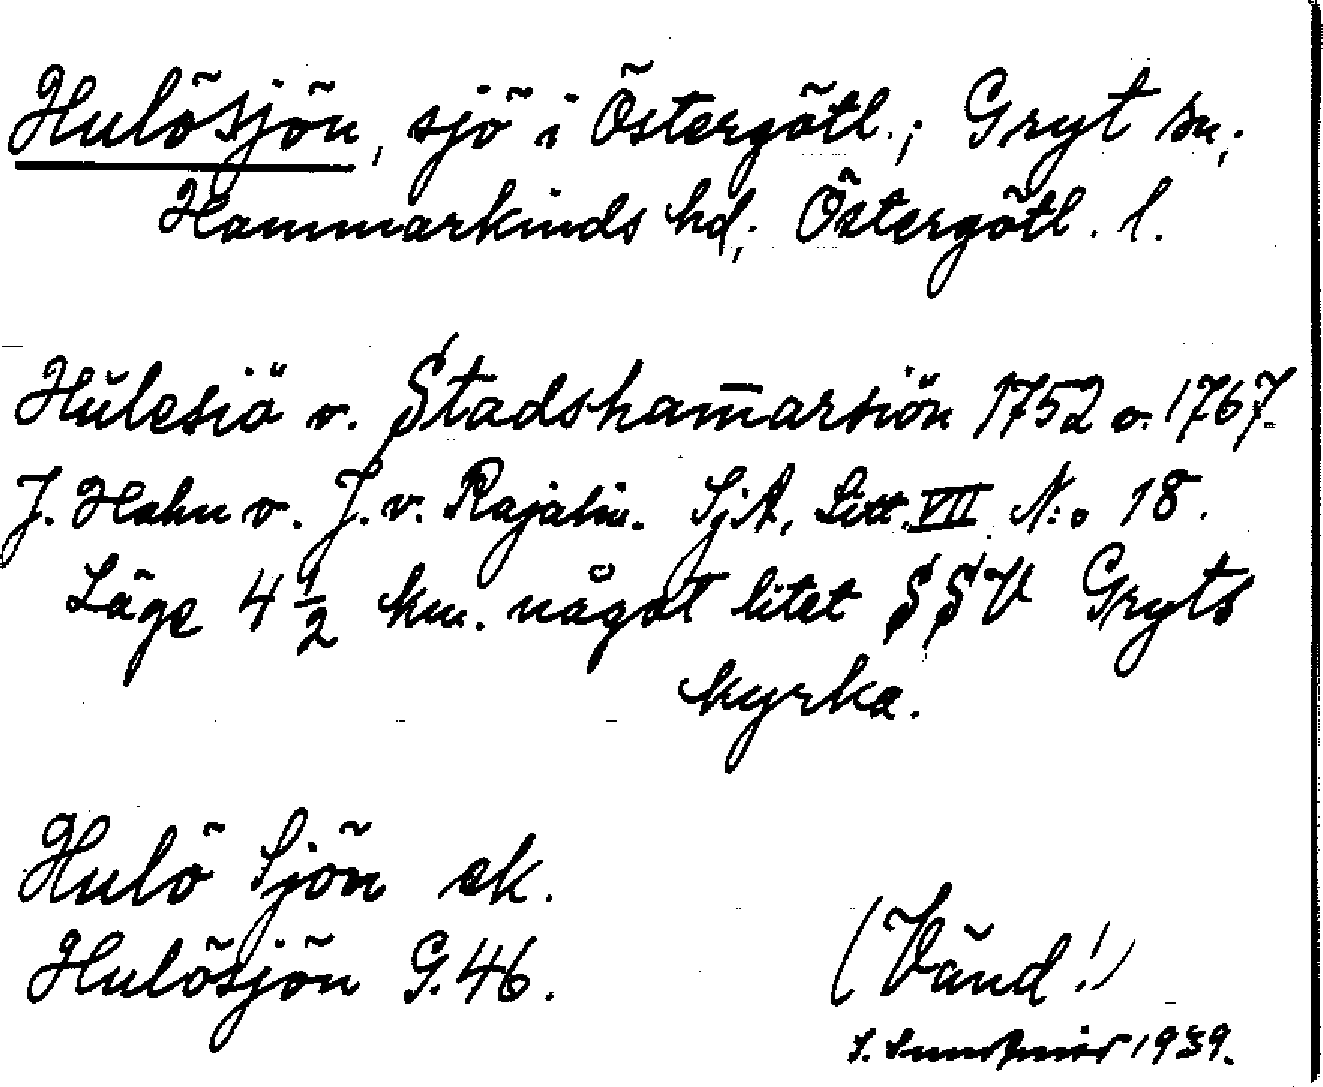 Hulösjön, sjö i Östergötl.; Gryt sn,;
Hammarkinds hd,; Östergötl. l.
Hŭlesiö v. Stadsham̄arsiön 1752 o. 1767
J. Hahn o. J. v. Rajalin. SjA, Litt. VII N:o 18.
Läge 4 1/2 km. något litet SSV Gryts
kyrka.
Hulö Sjön ek.
Hulösjön G. 46.
(Vänd!)
1939.